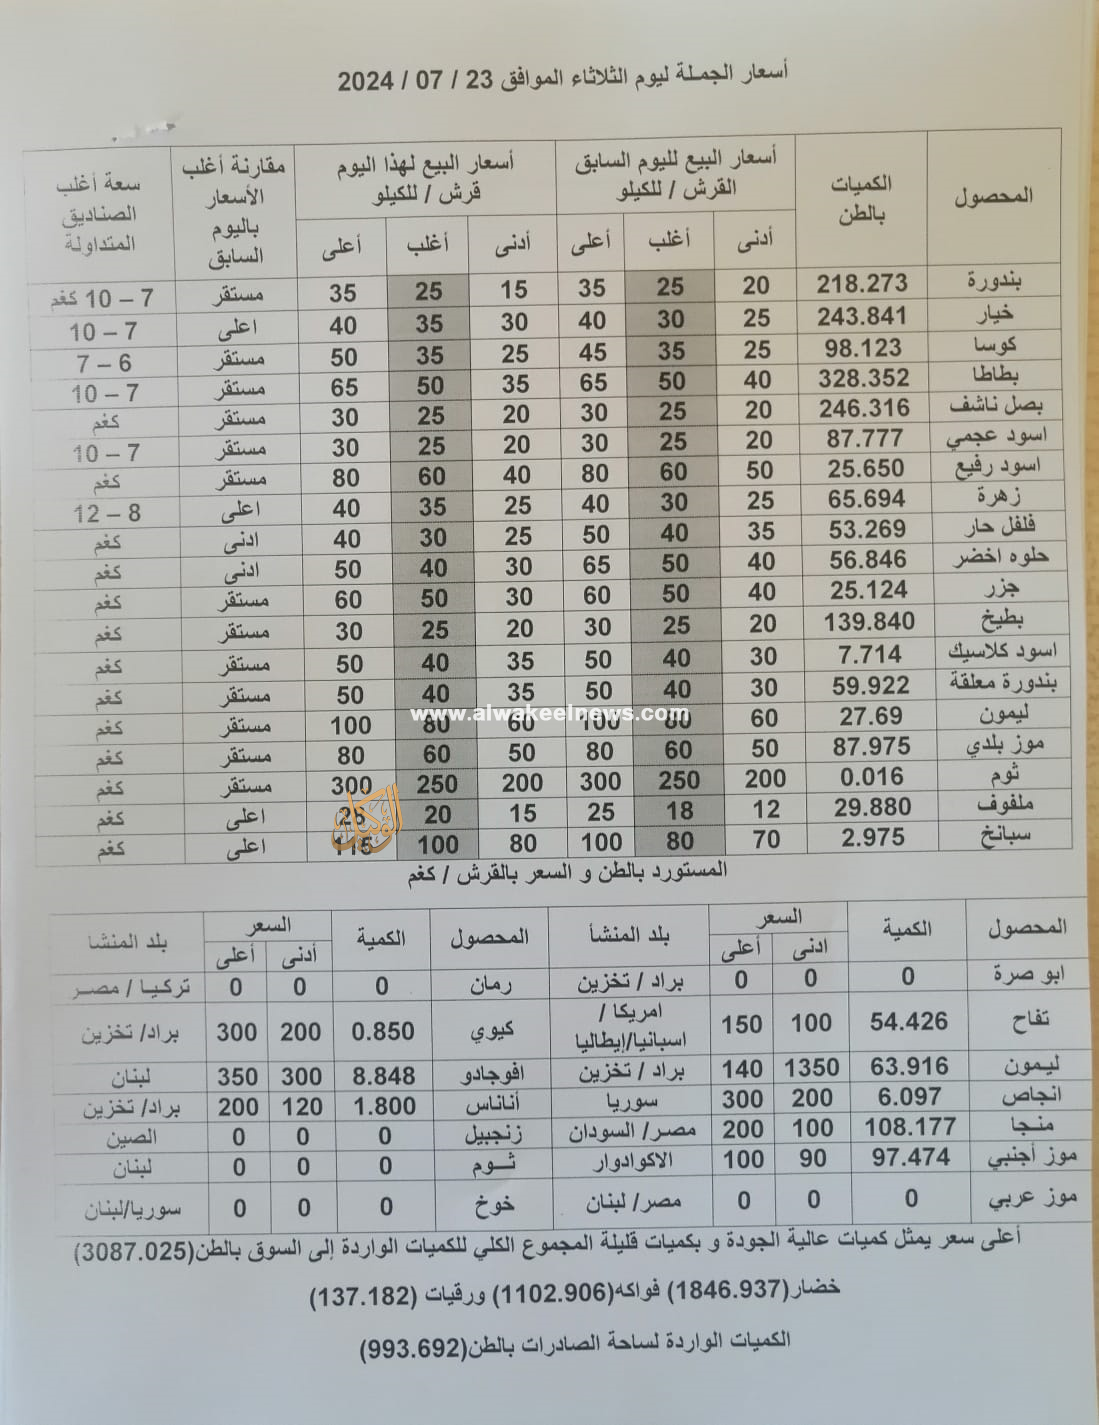 أسعار الجملة ليوم الثلاثاء الموافق 23 / 07 / 2024
المحصول الكميات بالطن أسعار البيع لليوم السابق القرش / للكيلو أسعار البيع لهذا اليوم قرش / للكيلو مقارنة أغلب الأسعار باليوم السابق سعة أغلب الصناديق المتداولة
أدنى أغلب أعلى أدنى أغلب أعلى
بندورة 218.273 20 25 35 15 25 35 مستقر 7 – 10 كغم
خيار 243.841 25 30 40 30 35 40 اعلى 7 – 10
كوسا 98.123 25 35 45 25 35 50 مستقر 6 – 7
بطاطا 328.352 40 50 65 35 50 65 مستقر 7 – 10
بصل ناشف 246.316 20 25 30 20 25 30 مستقر كغم
اسود عجمي 87.777 20 25 30 20 25 30 مستقر 7 – 10
اسود رفيع 25.650 50 60 80 40 60 80 مستقر كغم
زهرة 65.694 25 30 40 25 35 40 اعلى 8 – 12
فلفل حار 53.269 35 40 50 25 30 40 ادنى كغم
حلوه اخضر 56.846 40 50 65 30 40 50 ادنى كغم
جزر 25.124 40 50 60 30 50 60 مستقر كغم
بطيخ 139.840 20 25 30 20 25 30 مستقر كغم
اسود كلاسيك 7.714 30 40 50 35 40 50 مستقر كغم
بندورة معلقة 59.922 30 40 50 35 40 50 مستقر كغم
ليمون 27.69 60 80 100 60 80 100 مستقر كغم
www.alwakeelnews.com
موز بلدي 87.975 50 60 80 50 60 80 مستقر كغم
ثوم 0.016 200 250 300 200 250 300 مستقر كغم
ملفوف 29.880 12 18 25 15 20 اعلى كغم
سبانخ 2.975 70 80 100 80 100 115 اعلى كغم
الوكيل
المستورد بالطن و السعر بالقرش / كغم
المحصول الكمية السعر بلد المنشأ المحصول الكمية السعر بلد المنشا
ادنى أعلى أدنى أعلى
ابو صرة 0 0 0 براد / تخزين رمان 0 0 0 تركيا / مصر
تفاح 54.426 100 150 امريكا / اسبانيا/إيطاليا كيوي 0.850 200 300 براد/ تخزين
ليمون 63.916 1350 140 براد / تخزين افوجادو 8.848 300 350 لبنان
انجاص 6.097 200 300 سوريا أناناس 1.800 120 200 براد/ تخزين
منجا 108.177 100 200 مصر/ السودان زنجبيل 0 0 0 الصين
موز أجنبي 97.474 90 100 الاكوادوار ثوم 0 0 0 لبنان
موز عربي 0 0 0 مصر/ لبنان خوخ 0 0 0 سوريا/لبنان
أعلى سعر يمثل كميات عالية الجودة و بكميات قليلة المجموع الكلي للكميات الواردة إلى السوق بالطن(3087.025)
خضار(1846.937) فواكه(1102.906) ورقيات (137.182)
الكميات الواردة لساحة الصادرات بالطن(993.692)